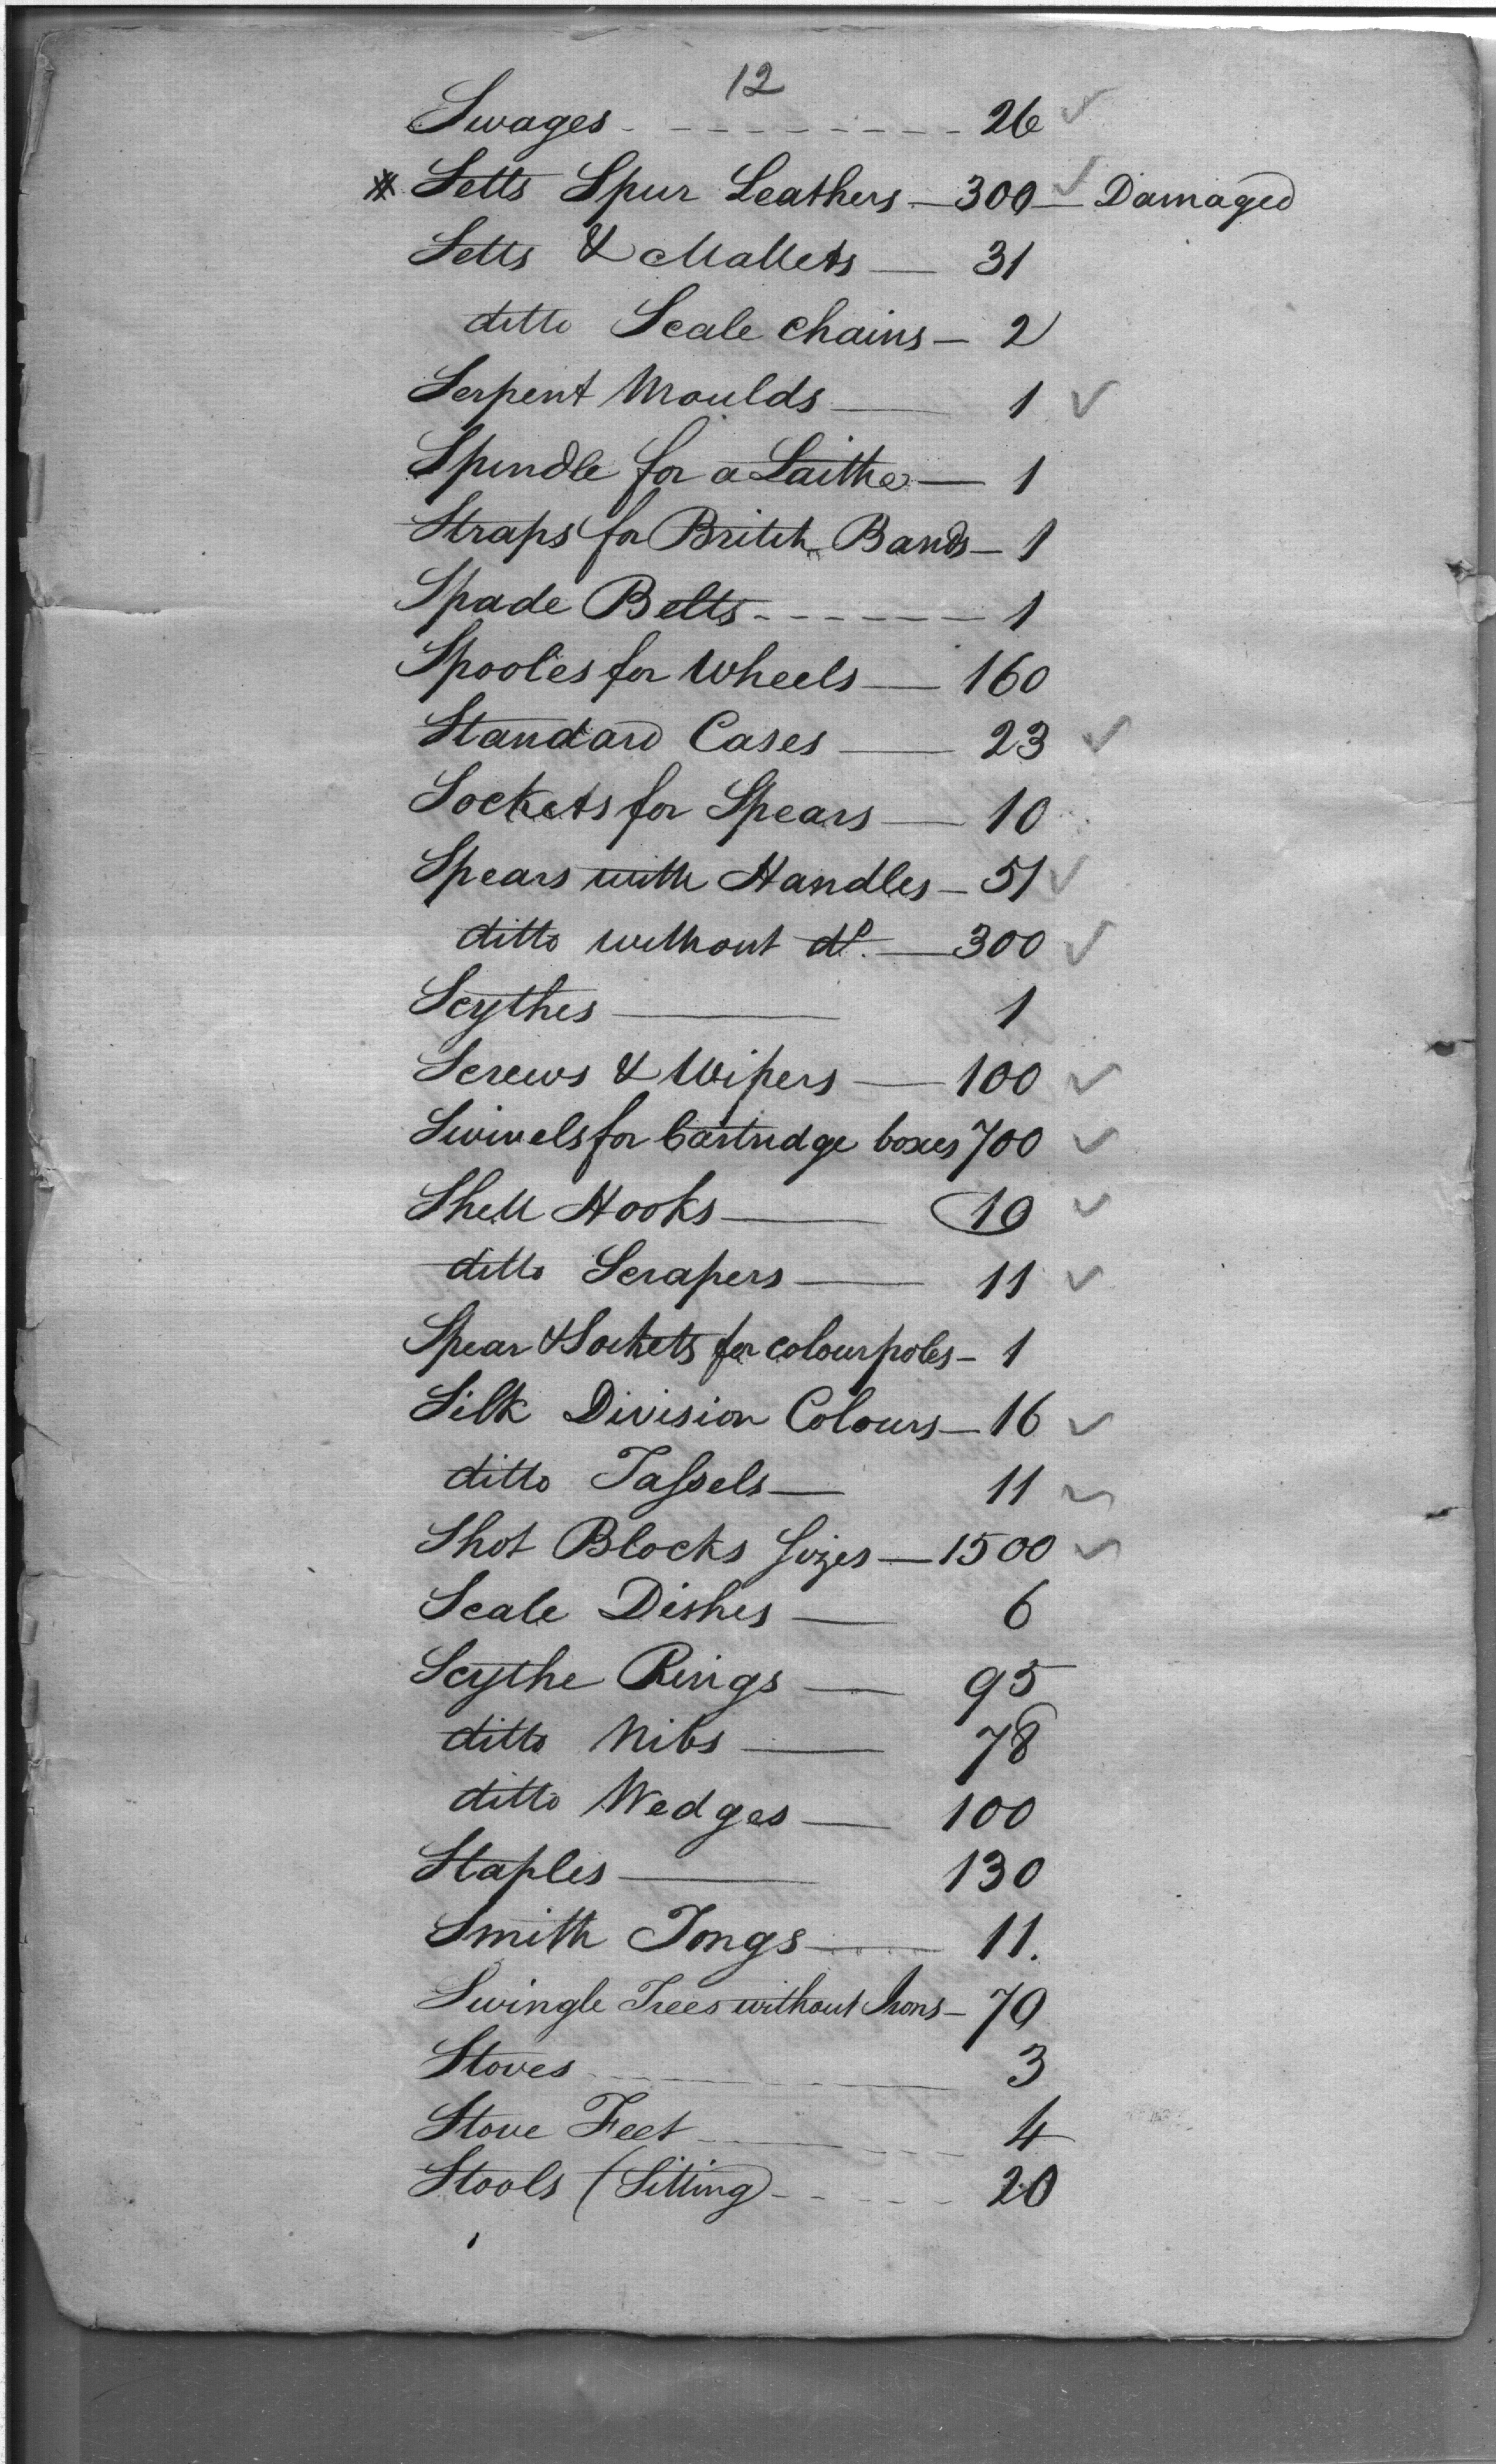 12
Swages - - - - - - - - - 26 ✓
* Setts Spur Leathers — 300 ✓ — Damaged
Setts & Mallets — 31
ditto Scale chains — 2
Serpent Moulds — 1 ✓
Spindle for a Laithe — 1
Straps for Britch Bands — 1
Spade Belts - - - - - - 1
Spooles for Wheels — 160
Standard Cases — 23 ✓
Sockets for Spears — 10
Spears with Handles — 51 ✓
ditto without do. — 300 ✓
Scythes — 1
Screws & Wipers — 100 ✓
Swivels for Cartridge boxes 700 ✓
Shell Hooks — 10 ✓
ditto Scrapers — 11 ✓
Spear & Sockets for colour poles — 1
Silk Division Colours — 16 ✓
ditto Tassels — 11 ✓
Shot Blocks Sizes — 1500 ✓
Scale Dishes — 6
Scythe Rings — 95
ditto Nibs — 78
ditto Wedges — 100
Staples — 130
Smith Tongs — 11.
Swingle Trees without Irons — 70
Stoves — 3
Stove Feet — 4
Stools (Sitting) - - - - - 20